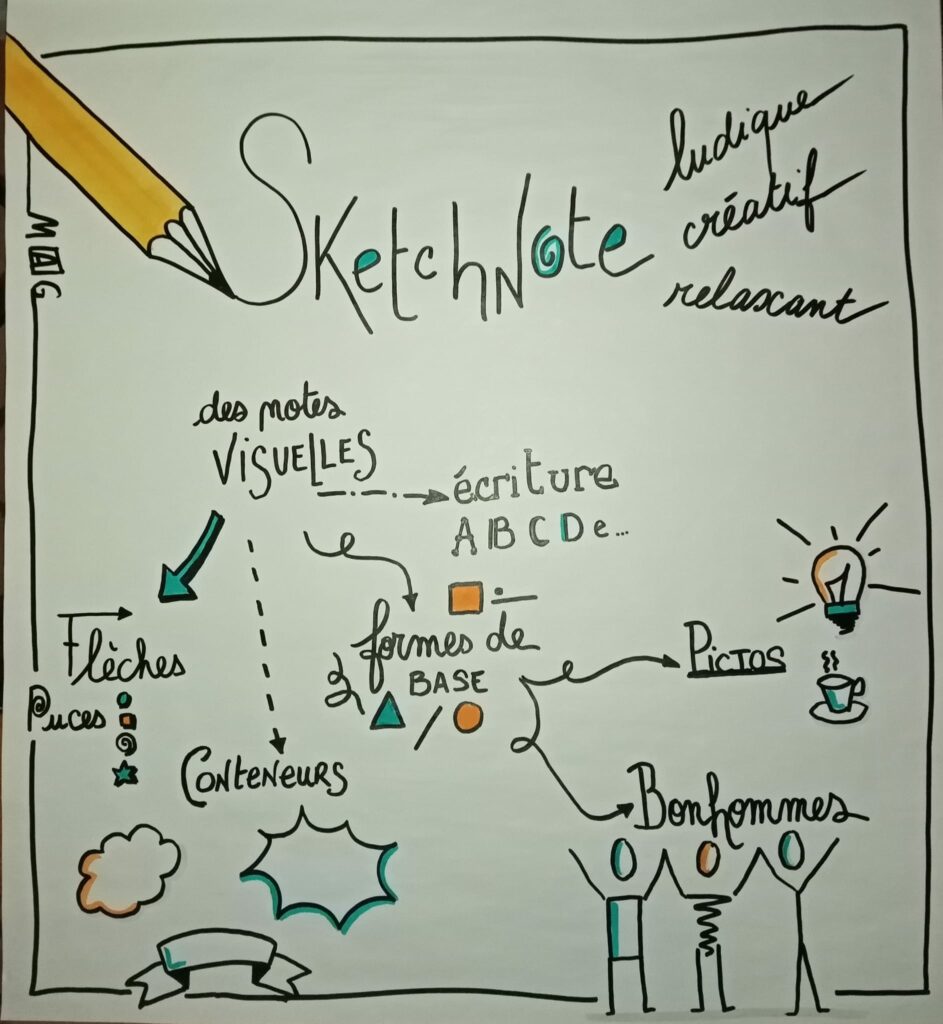 SketchNote
ludique
créatif
relaxant
MAG
des notes
VISUELLES
écriture
A B C D e...
Flèches
Puces
formes de
BASE
Pictos
Conteneurs
Bonhommes